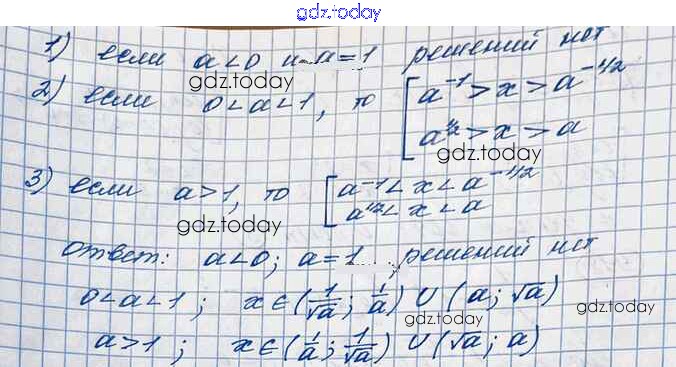 gdz.today
1) если a < 0 и a = 1 решений нет
gdz.today
2) если 0 < a < 1, то [ a⁻¹ > x > a^(-1/2)
a^(1/2) > x > a
gdz.today
3) если a > 1, то [ a⁻¹ < x < a^(-1/2)
a^(1/2) < x < a
gdz.today
ответ: a < 0; a = 1 ; решений нет
0 < a < 1 ; x ∈ (1/√a ; 1/a) ∪ (a ; √a)
gdz.today
gdz.today
a > 1 ; x ∈ (1/a ; 1/√a) ∪ (√a ; a)